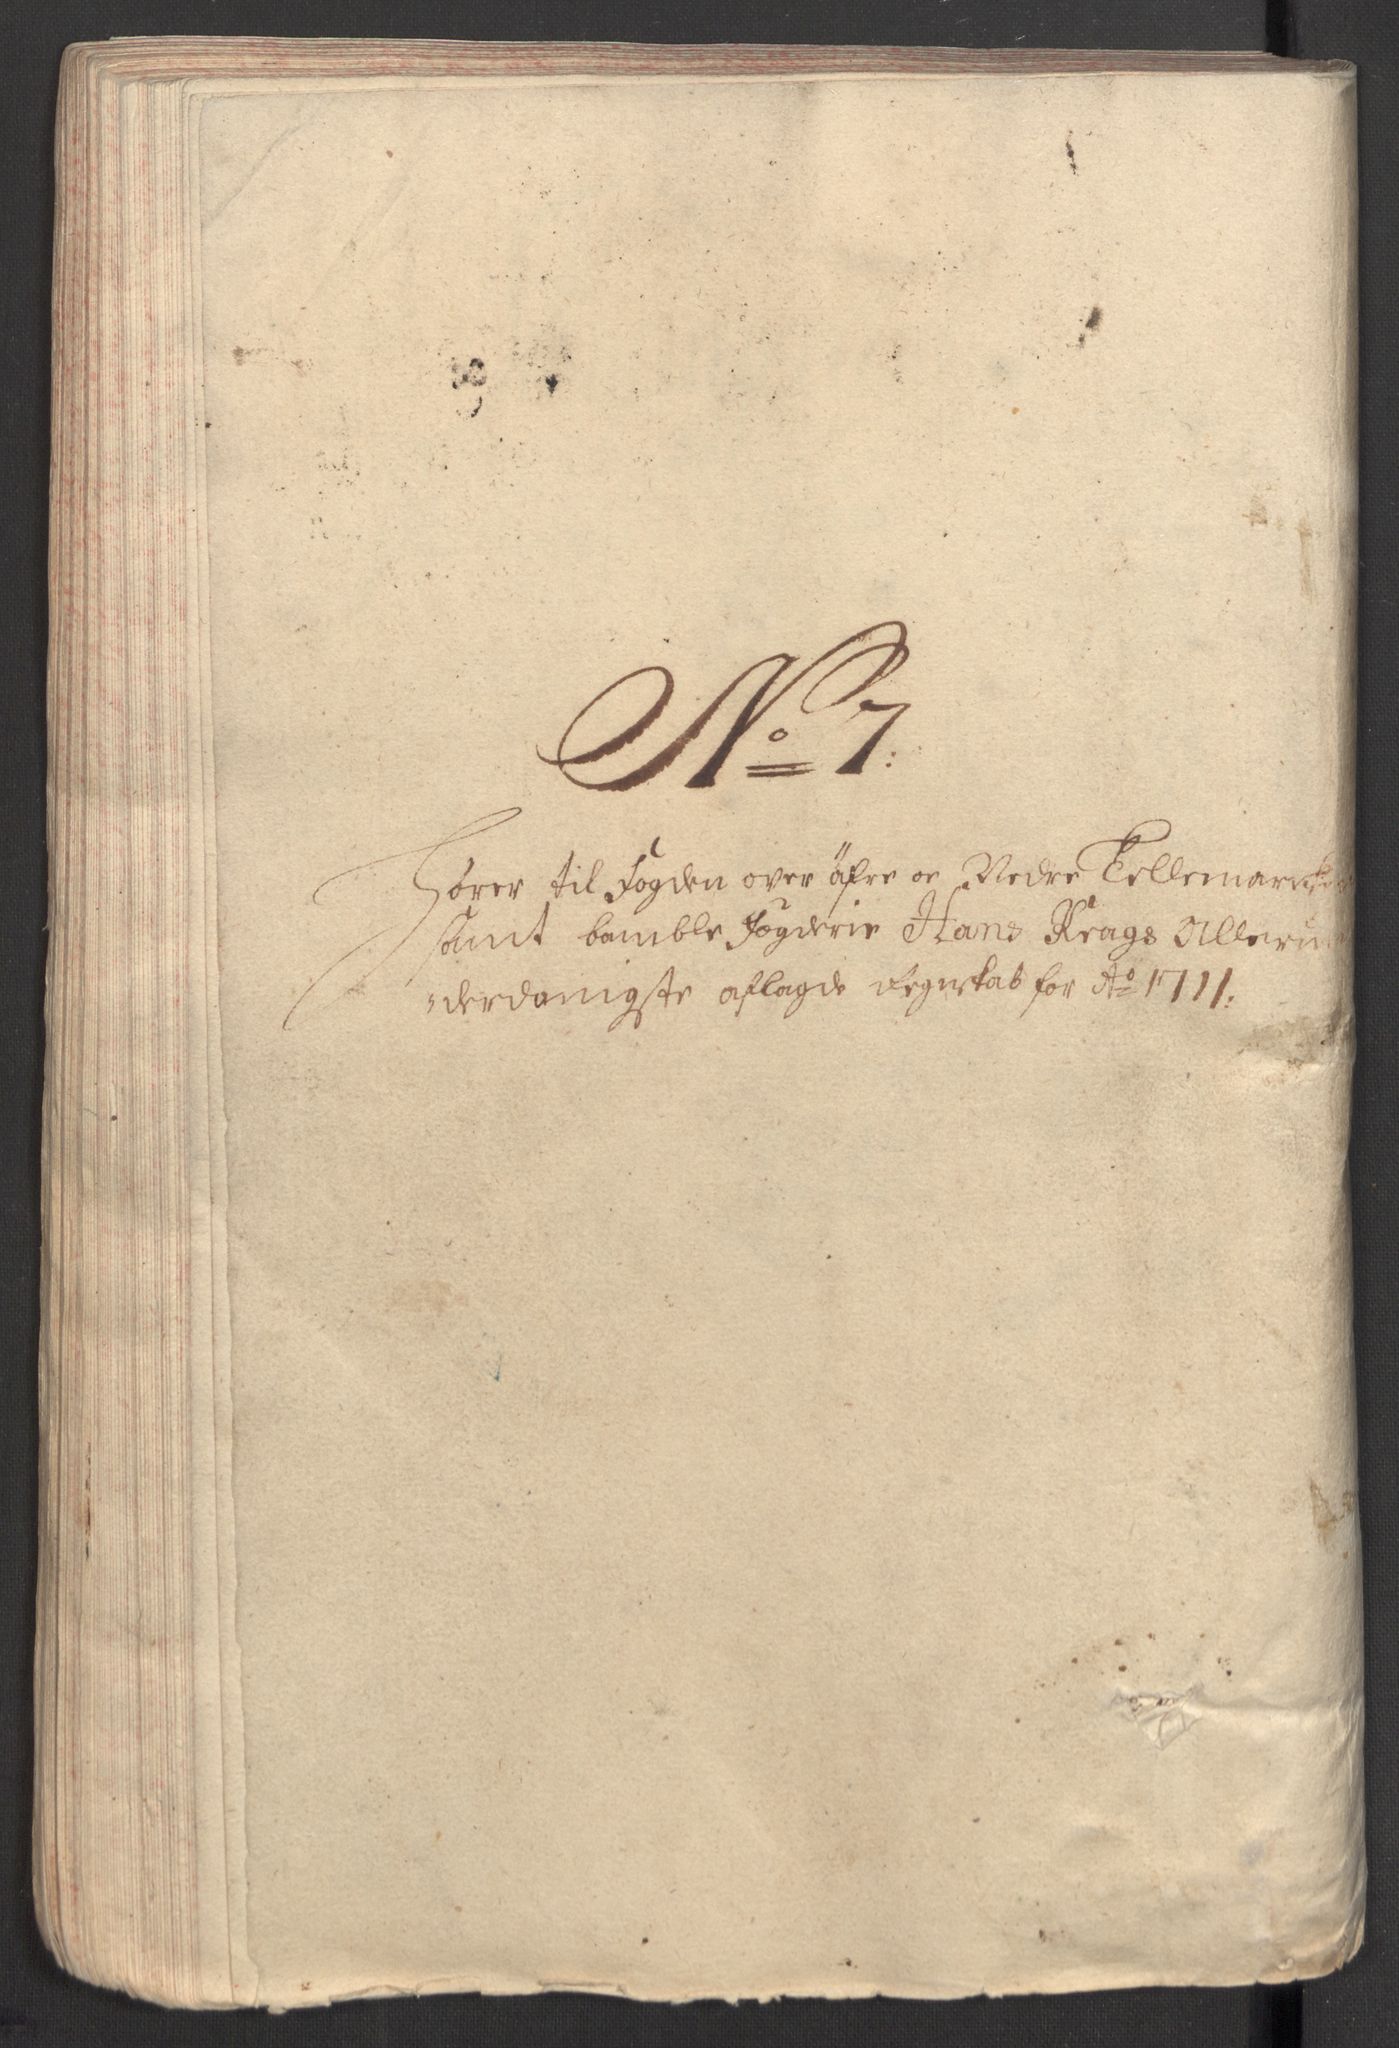 No 7:
Hører til Fogden over öfre oc Nedre Tellemarcken
samt bamble Fogderie Hans Krags Allerun
=derdanigste aflagde Regnskab for Ao 1711: